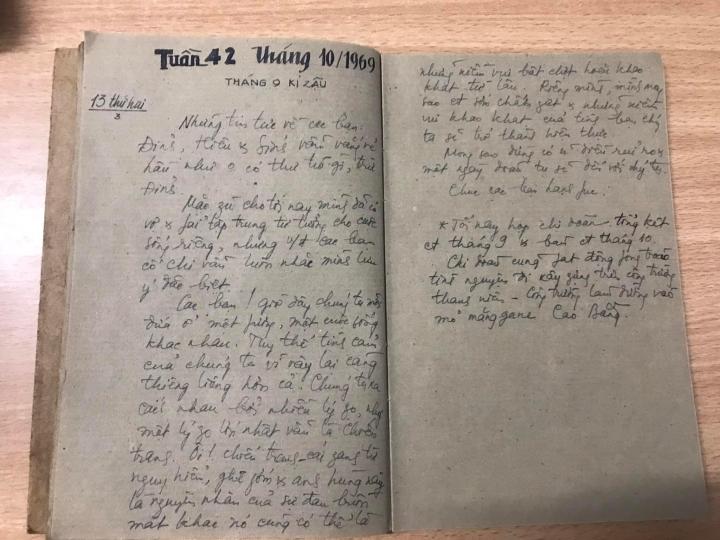 Tuần 42 tháng 10/1969
THÁNG 9 KỈ ZẬU
13 thứ hai
3
Những tin tức về các bạn.
Định, Hiếu & Sinh vẫn vắng vẻ
hầu như 0 có thư từ gì, trừ
Định.
Mặc zù cho tới nay mình đã có
vợ & fải tập trung tư tưởng cho cuộc
sống riêng, nhưng v/đ các bạn
có chi vẫn luôn nhắc mình lưu
ý đặc biệt.
Các bạn! giờ đây chúng ta mỗi
đứa ở một fương, một cuộc sống
khác nhau. Tuy thế tình cảm
của chúng ta vì vậy lại càng
thiêng liêng hơn cả. Chúng ta xa
cách nhau bởi nhiều lý zo, như
một lý zo lớn nhất vẫn là chiến
tranh. Ôi! chiến tranh - cái zanh từ
nguy hiểm, ghê gớm & anh hùng này
là nguyên nhân của sự đau buồn
mặt khác nó cũng có thể là
những niềm vui bất chợt hoài khao
khát từ lâu. Riêng mình, mình mong
sao ct sớm chấm zứt & những niềm
vui khao khát của từng bạn chúng
ta sẽ trở thành hiện thực.
Mong sao đừng có 1 điều rủi ro &
một ngày đoàn tụ sẽ đến với chúng ta.
Chúc các bạn hạnh fúc.
* Tối nay họp chi đoàn tổng kết
ct tháng 9 & bàn ct tháng 10.
Chi đoàn cũng fát động fong trào
tình nguyện đi xây zựng trên công trường
thanh niên - Công trường làm đường vào
mỏ măng gane Cao Bằng.